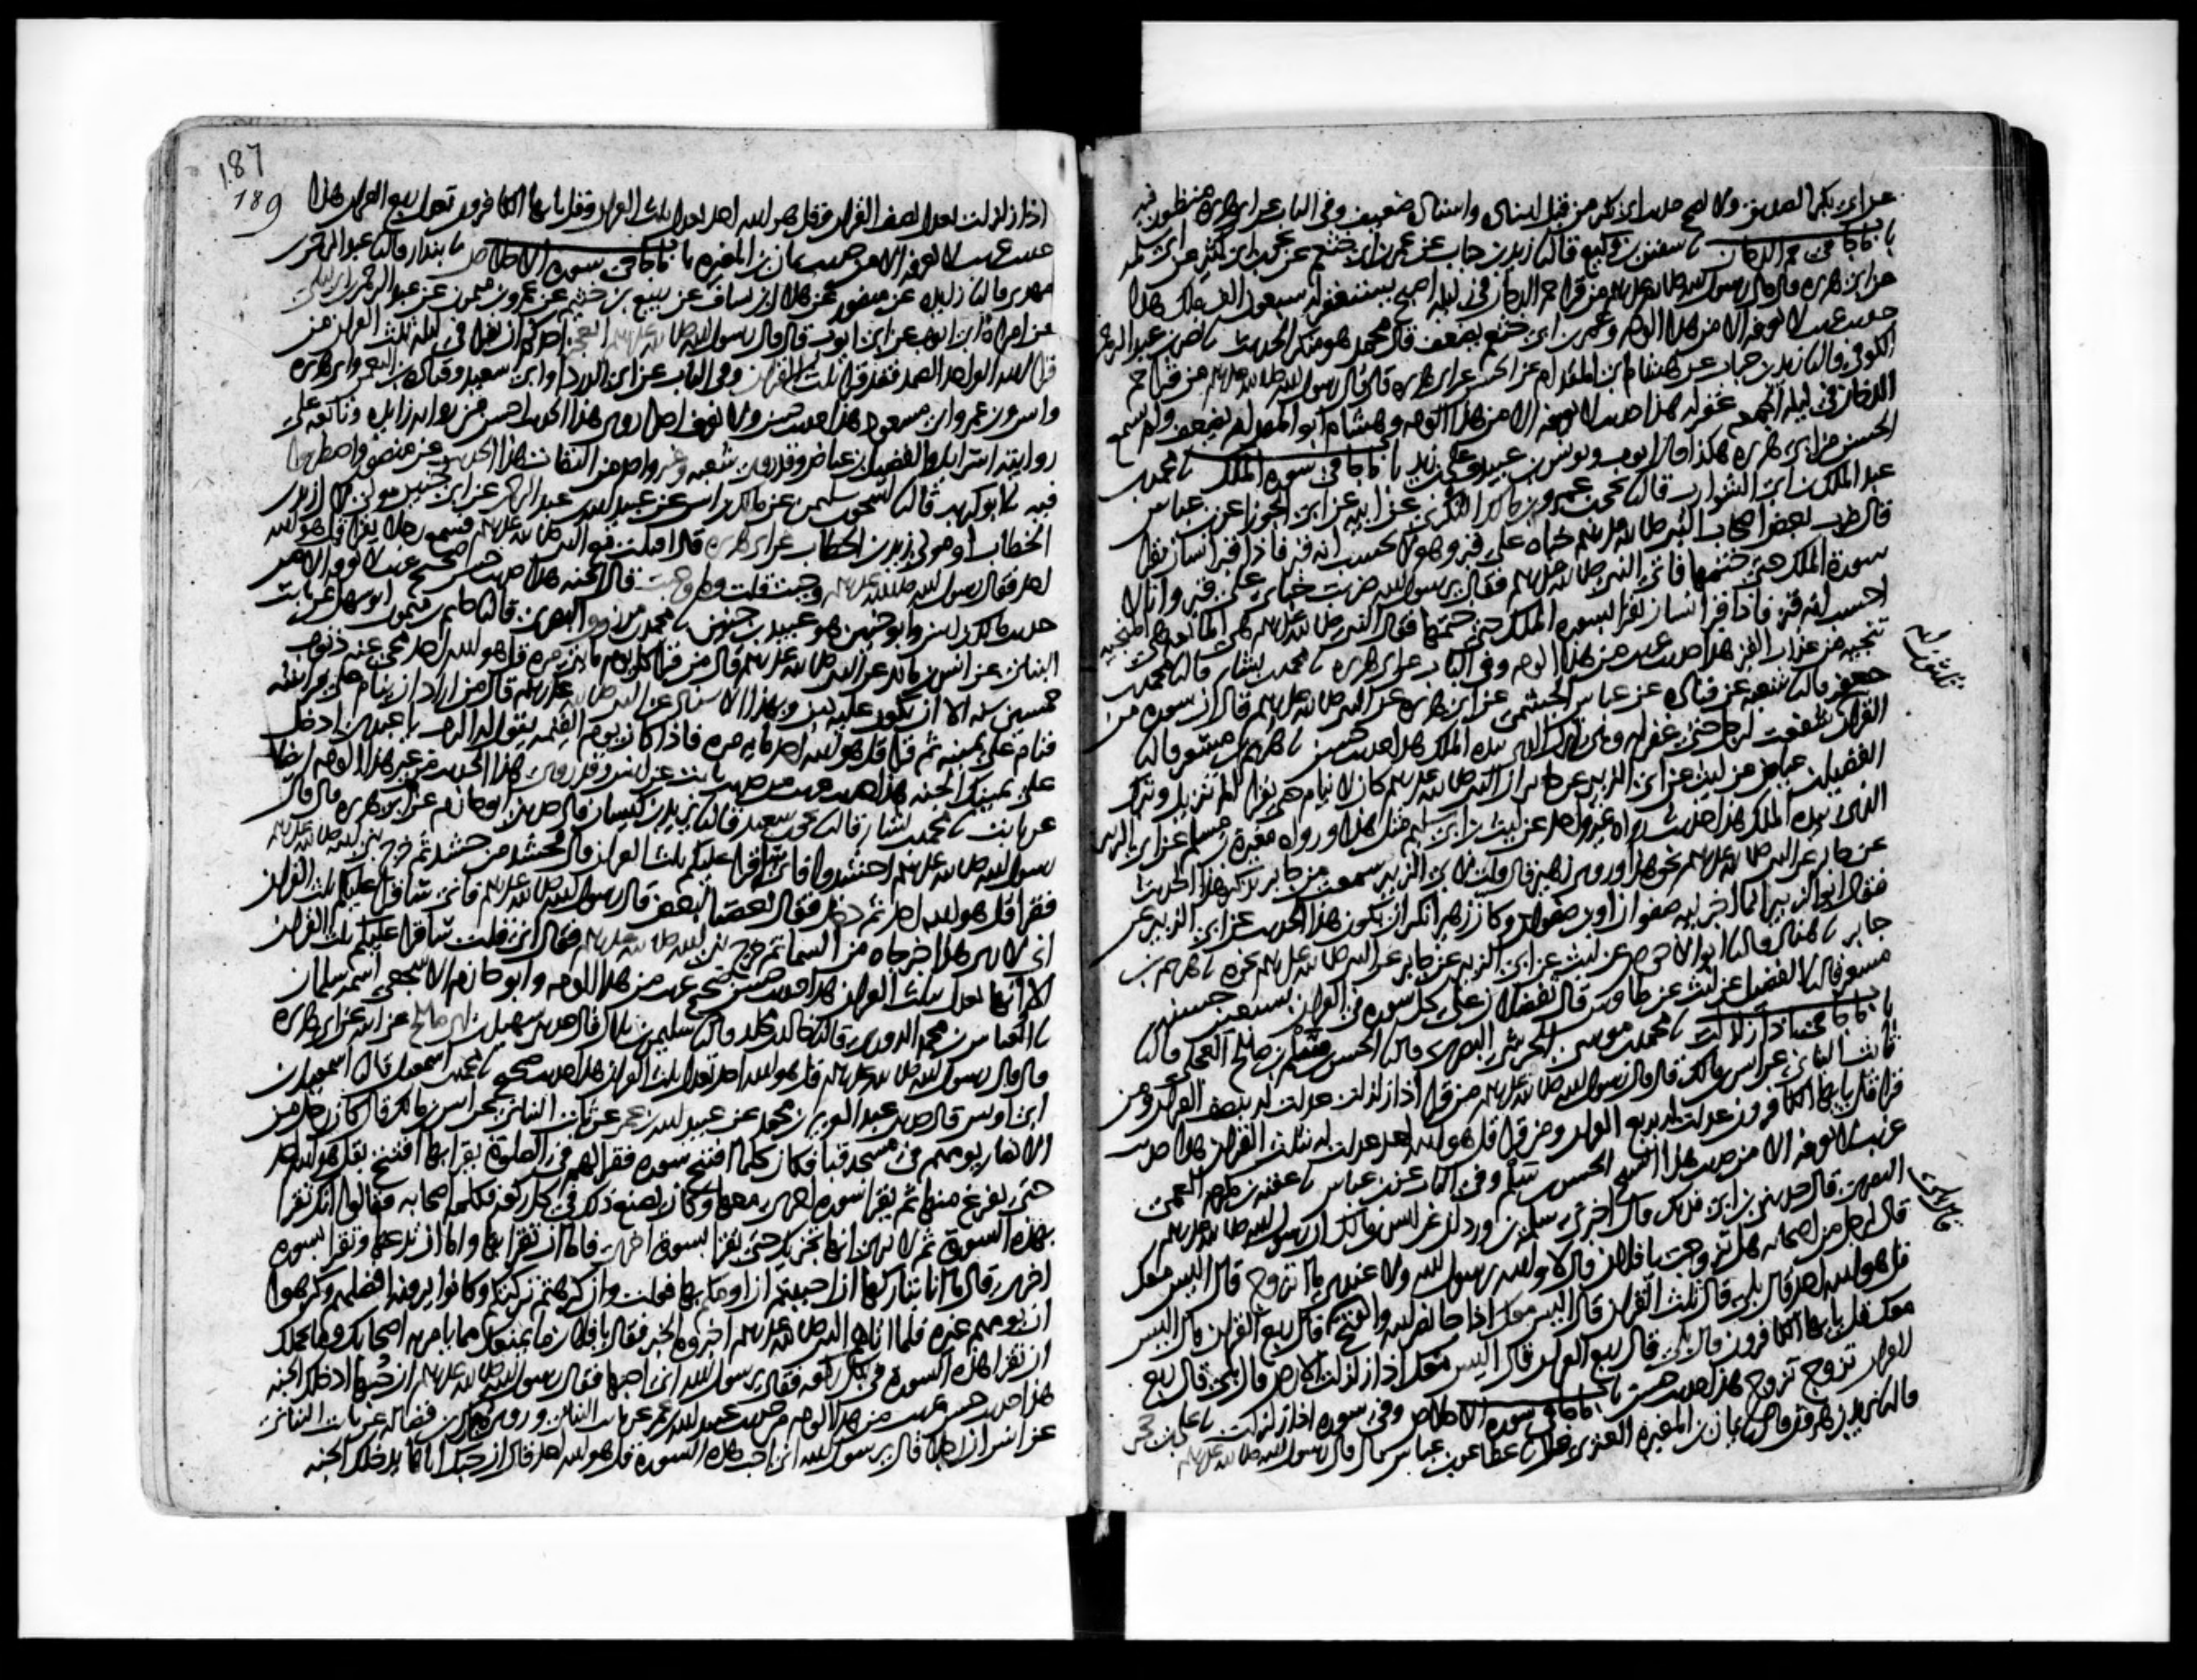 عن ابي بكر الصديق ولا يصح حديث ابي بكر من قبل اسناده واسناده ضعيف وفي الباب عن ابي هريرة منظور فيه
باب ما جا في حم الدخان نا سفين بن وكيع قال نا زيد بن حباب عن عمر بن ابي خثعم عن يحيى بن ابي كثير عن ابي سلمة
عن ابي هريرة قال قال رسول الله صلى الله عليه وسلم من قرا حم الدخان في ليلة اصبح يستغفر له سبعون الف ملك هذا
حديث غريب لا نعرفه الا من هذا الوجه وعمر بن ابي خثعم يضعف قال محمد هو منكر الحديث نا نصر بن عبد الرحمن
الكوفي قال نا زيد بن حباب عن هشام ابي المقدام عن الحسن عن ابي هريرة قال قال رسول الله صلى الله عليه وسلم من قرا حم
الدخان في ليلة الجمعة غفر له هذا حديث لا نعرفه الا من هذا الوجه وهشام ابو المقدام يضعف ولم يسمع
الحسن من ابي هريرة هكذا قال ايوب ويونس بن عبيد وعلي بن زيد باب ما جا في سورة الملك نا محمد بن
عبد الملك بن ابي الشوارب قال نا يحيى بن عمرو بن مالك النكري عن ابيه عن ابي الجوزا عن ابن عباس
قال ضرب بعض اصحاب النبي صلى الله عليه وسلم خباه على قبر وهو لا يحسب انه قبر فاذا قبر انسان يقرا
سورة الملك حتى ختمها فاتى النبي صلى الله عليه وسلم فقال يرسول الله ضربت خباي على قبر وانا لا
احسب انه قبر فاذا قبر انسان يقرا سورة الملك حتى ختمها فقال النبي صلى الله عليه وسلم هي المانعة هي المنجية
تنجيه من عذاب القبر هذا حديث غريب من هذا الوجه وفي الباب عن ابي هريرة نا محمد بن بشار قال نا محمد بن
جعفر قال نا شعبه عن قتاده عن عباس الجشمي عن ابي هريرة عن النبي صلى الله عليه وسلم قال ان سورة من
القران شفعت لرجل حتى غفر له وهي تبارك الذي بيده الملك هذا حديث حسن نا هريم بن مسعر قال نا
الفضيل بن عياض عن ليث عن ابي الزبير عن جابر ان النبي صلى الله عليه وسلم كان لا ينام حتى يقرا الم تنزيل وتبارك
الذي بيده الملك هذا حديث رواه غير واحد عن ليث بن ابي سليم مثل هذا ورواه مغيرة بن مسلم عن ابي الزبير
عن جابر عن النبي صلى الله عليه وسلم نحو هذا وروى زهير قال قلت لابي الزبير سمعت من جابر يذكر هذا الحديث
فقال ابو الزبير انما اخبرنيه صفوان او ابن صفوان وكان زهير انكر ان يكون هذا الحديث عن ابي الزبير عن
جابر نا هناد قال نا ابو الاحوص عن ليث عن ابي الزبير عن جابر عن النبي صلى الله عليه وسلم نحوه نا هريم بن
مسعر قال نا الفضيل عن ليث عن طاوس قال تفضلان على كل سورة في القران بسبعين حسنة
باب ما جا في اذا زلزلت نا محمد بن موسى الجرشي البصري قال نا الحسن بن سلم بن صالح العجلي قال نا
ثابت البناني عن انس بن مالك قال قال رسول الله صلى الله عليه وسلم من قرا اذا زلزلت عدلت له بنصف القران ومن
قرا قل يا يها الكافرون عدلت له بربع القران ومن قرا قل هو الله احد عدلت له بثلث القران هذا حديث
غريب لا نعرفه الا من حديث هذا الشيخ الحسن بن سلم وفي الباب عن ابن عباس نا عقبة بن مكرم العمي
البصري قال حدثني ابن ابي فديك قال اخبرني سلمة بن وردان عن انس بن مالك ان رسول الله صلى الله عليه وسلم
قال لرجل من اصحابه هل تزوجت يا فلان قال لا والله يرسول الله ولا عندي ما اتزوج قال اليس معك
قل هو الله احد قال بلى قال ثلث القران قال اليس معك اذا جا نصر الله والفتح قال بلى قال ربع القران قال اليس
معك قل يا يها الكافرون قال بلى قال ربع القران قال اليس معك اذا زلزلت الارض قال بلى قال ربع
القران تزوج تزوج هذا حديث حسن باب ما جا في سورة الاخلاص وفي سورة اذا زلزلت نا علي بن حجر
قال نا يزيد بن هرون قال نا يمان بن المغيرة العنزي قال نا عطا عن ابن عباس قال قال رسول الله صلى الله عليه وسلم
187
189
اذا زلزلت تعدل نصف القران وقل هو الله احد تعدل ثلث القران وقل يا يها الكافرون تعدل ربع القران هذا
حديث غريب لا نعرفه الا من حديث يمان بن المغيرة باب ما جا في سورة الاخلاص نا بندار قال نا عبد الرحمن بن
مهدي قال نا زايدة عن منصور عن هلال بن يساف عن ربيع بن خثيم عن عمرو بن ميمون عن عبد الرحمن بن ابي ليلى
عن امراة ابي ايوب عن ابي ايوب قال قال رسول الله صلى الله عليه وسلم ايعجز احدكم ان يقرا في ليلة ثلث القران من
قرا الله الواحد الصمد فقد قرا ثلث القران وفي الباب عن ابي الدردا وابي سعيد وقتادة بن النعمن وابي هريرة
وانس وابن عمر وابن مسعود هذا حديث حسن ولا نعرف احدا روى هذا الحديث احسن من رواية زايدة وتابعه على
روايته اسرايل والفضيل بن عياض وقد روى شعبه وغير واحد من الثقات هذا الحديث عن منصور واضطربوا
فيه نا ابو كريب قال نا اسحق بن سليمن عن مالك بن انس عن عبيد الله بن عبد الرحمن عن ابي حنين مولى لال زيد بن
الخطاب او مولى زيد بن الخطاب عن ابي هريرة قال اقبلت مع النبي صلى الله عليه وسلم فسمع رجلا يقرا قل هو الله
احد فقال رسول الله صلى الله عليه وسلم وجبت قلت وما وجبت قال الجنة هذا حديث حسن صحيح غريب لا نعرفه الا من
حديث مالك بن انس وابو حنين هو عبيد بن حنين نا محمد بن مرزوق البصري قال نا حاتم بن ميمون ابو سهل عن ثابت
البناني عن انس بن مالك عن النبي صلى الله عليه وسلم قال من قرا كل يوم مايتي مرة قل هو الله احد محي عنه ذنوب
خمسين سنة الا ان يكون عليه دين وبهذا الاسناد عن النبي صلى الله عليه وسلم قال من اراد ان ينام على فراشه
فنام على يمينه ثم قرا قل هو الله احد ماية مرة فاذا كان يوم القيمة يقول له الرب يا عبدي ادخل
على يمينك الجنة هذا حديث غريب من حديث ثابت عن انس وقد روي هذا الحديث من غير هذا الوجه ايضا
عن ثابت نا محمد بن بشار قال نا يحيى بن سعيد قال نا يزيد بن كيسان قال حدثني ابو حازم عن ابي هريرة قال قال
رسول الله صلى الله عليه وسلم احشدوا فاني ساقرا عليكم ثلث القران قال فحشد من حشد ثم خرج نبي الله صلى الله عليه وسلم
فقرا قل هو الله احد ثم دخل فقال بعضنا لبعض قال رسول الله صلى الله عليه وسلم فاني ساقرا عليكم ثلث القران
اني لارى هذا خبر جاه من السما ثم خرج نبي الله صلى الله عليه وسلم فقال اني قلت ساقرا عليكم ثلث القران
الا وانها تعدل بثلث القران هذا حديث حسن صحيح غريب من هذا الوجه وابو حازم الاشجعي اسمه سلمان
نا العباس بن محمد الدوري قال نا خالد بن مخلد قال نا سليمن بن بلال قال حدثني سهيل بن ابي صالح عن ابيه عن ابي هريرة
قال قال رسول الله صلى الله عليه وسلم قل هو الله احد تعدل ثلث القران هذا حديث صحيح نا محمد بن اسمعيل قال نا اسمعيل بن
ابي اويس قال حدثني عبد العزيز بن محمد عن عبيد الله بن عمر عن ثابت البناني عن انس بن مالك قال كان رجل من
الانصار يومهم في مسجد قبا فكان كلما افتتح سورة فقرا لهم في الصلوة يقرا بها افتتح بقل هو الله احد
حتى يفرغ منها ثم يقرا سورة اخرى معها وكان يصنع ذلك في كل ركعة فكلمه اصحابه فقالوا انك تقرا
بهذه السورة ثم لا ترى انها تجزيك حتى تقرا بسورة اخرى فاما ان تقرا بها واما ان تدعها وتقرا بسورة
اخرى قال ما انا بتاركها ان احببتم ان اومكم بها فعلت وان كرهتم تركتكم وكانوا يرونه افضلهم وكرهوا
ان يومهم غيره فلما اتاهم النبي صلى الله عليه وسلم اخبروه الخبر فقال يا فلان ما يمنعك مما يامر به اصحابك وما يحملك
ان تقرا هذه السورة في كل ركعة فقال يرسول الله اني احبها فقال رسول الله صلى الله عليه وسلم ان حبها ادخلك الجنة
هذا حديث حسن غريب من هذا الوجه من حديث عبيد الله بن عمر عن ثابت البناني وروى مبارك بن فضالة عن ثابت البناني
عن انس ان رجلا قال يرسول الله اني احب هذه السورة قل هو الله احد قال ان حبك اياها يدخلك الجنة